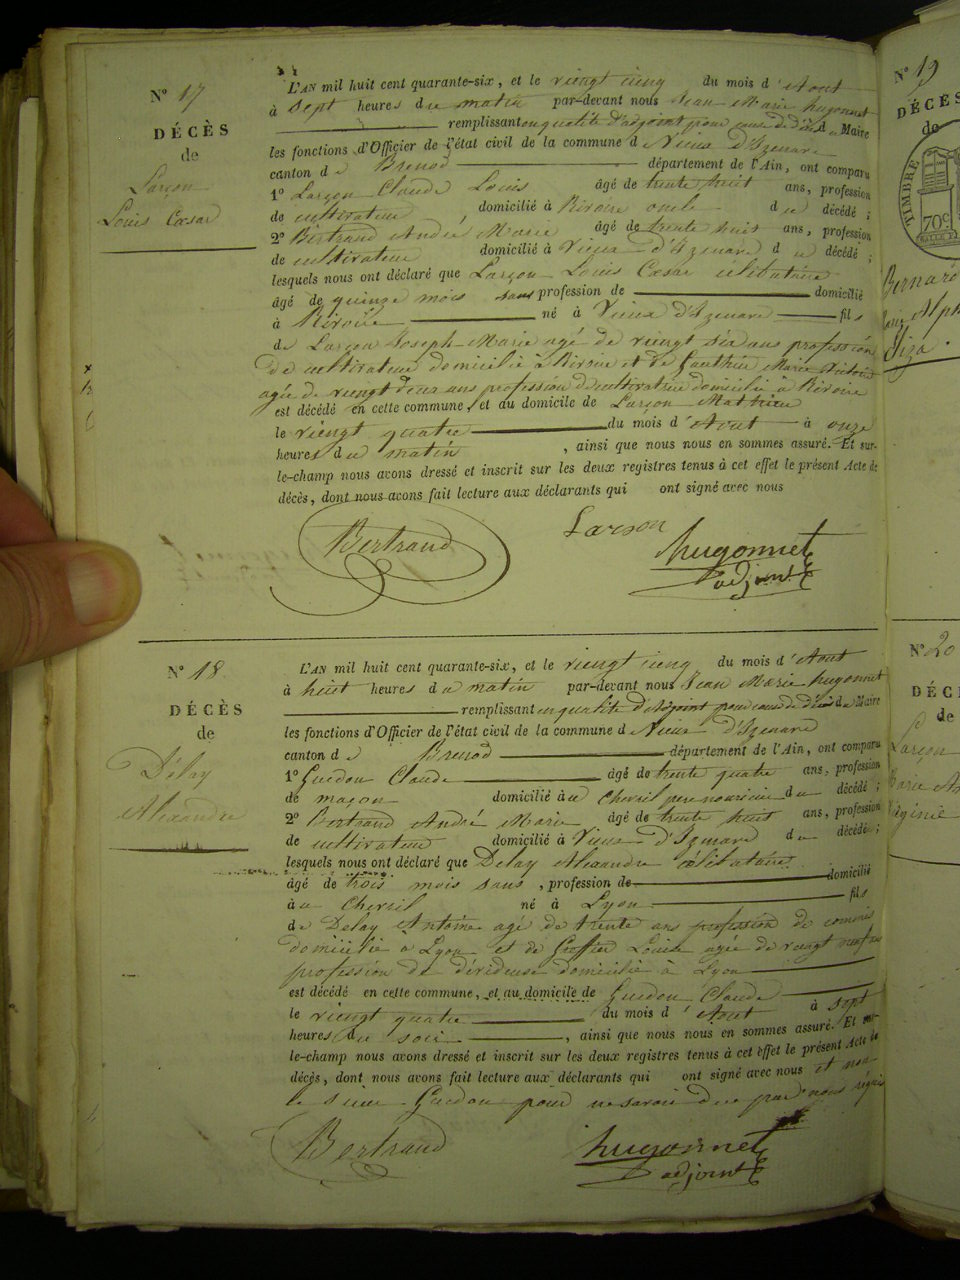 N° 17
DÉCÈS
de
Larçon
Louis Cæsar
L'AN mil huit cent quarante-six, et le vingt cinq du mois d'Aout
à sept heures du matin par-devant nous Jean Marie hugonnet
remplissant en qualité d'adjoint pour cause de décès du Maire
les fonctions d'Officier de l'état civil de la commune d Vieux d'Izenave
canton de Brenod département de l'Ain, ont comparu
1° Larçon Claude Louis âgé de trente huit ans, profession
de cultivateur, domicilié à Riroire oncle du décédé ;
2° Bertrand André Marie âgé de trente huit ans, profession
de cultivateur domicilié à Vieux d'Izenave d u décédé ;
lesquels nous ont déclaré que Larçon Louis Cæsar célibataire
âgé de quinze mois sans profession de domicilié
à Riroire né à Vieux d'Izenave fils
de Larçon Joseph Marie agé de vingt six ans profession
de cultivateur domicilié à Riroire et de Gauthier Marie Victoire
agée de vingt deux ans profession de cultivatrice domicilié à Riroire
est décédé en cette commune, et au domicile de Larçon Mathieu
le vingt quatre du mois d'Aout à onze
heures du matin, ainsi que nous nous en sommes assuré. Et sur-
le-champ nous avons dressé et inscrit sur les deux registres tenus à cet effet le présent Acte de
décès, dont nous avons fait lecture aux déclarants qui ont signé avec nous
Bertrand Larçon hugonnet
adjoint
N° 18
DÉCÈS
de
Délay
Alexandre
L'AN mil huit cent quarante-six, et le vingt cinq du mois d'Aout
à huit heures du matin par-devant nous Jean Marie hugonnet
remplissant en qualité d'Adjoint pour cause de décès du Maire
les fonctions d'Officier de l'état civil de la commune d Vieux d'Izenave
canton de Brenod département de l'Ain, ont comparu
1° Guedon Claude âgé de trente quatre ans, profession
de maçon domicilié au Chevril pere nouricier du décédé ;
2° Bertrand André Marie âgé de trente huit ans, profession
de cultivateur domicilié à Vieux d'Izenave du décédé ;
lesquels nous ont déclaré que Delay Alexandre célibataire
âgé de trois mois sans, profession de domicilié
à au Chevril né à Lyon fils
de Delay Antoine agé de trente ans profession de commis
domicilié à Lyon et de Louise agée de vingt neuf ans
profession de dévideuse domicilié à Lyon
est décédé en cette commune, et au domicile de Guedon Claude
le vingt quatre du mois d'Aout à sept
heures du soir, ainsi que nous nous en sommes assuré. Et sur-
le-champ nous avons dressé et inscrit sur les deux registres tenus à cet effet le présent Acte de
décès, dont nous avons fait lecture aux déclarants qui ont signé avec nous et non
le sieur Guedon pour ne savoir de ce par nous requis
Bertrand hugonnet
adjoint
N° 19
DÉCÈS
de
TIMBRE
70c
Bernard
Alph
Eliza.
N° 20
DÉC
de
Larçon
Marie An
Virginie